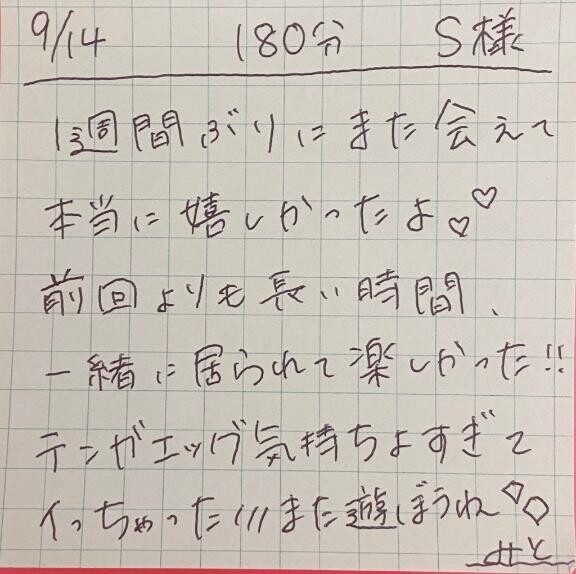 9/14 180分 S様
1週間ぶりにまた会えて
本当に嬉しかったよ♡♡
前回よりも長い時間、
一緒に居られて楽しかった!!
テンガエッグ気持ちよすぎて
イっちゃった///また遊ぼうね♡♡
みと